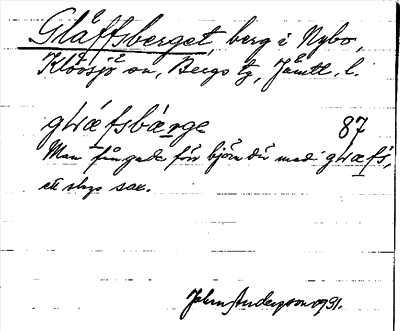 Gläffsberget, berg i Nybo,
Klövsjö sn, Bergs tg, Jämtl. l.
gLæfsbærge 87
Man fångade förr björn där med gLæfs,
ett slags sax.
John Anderson 1931.